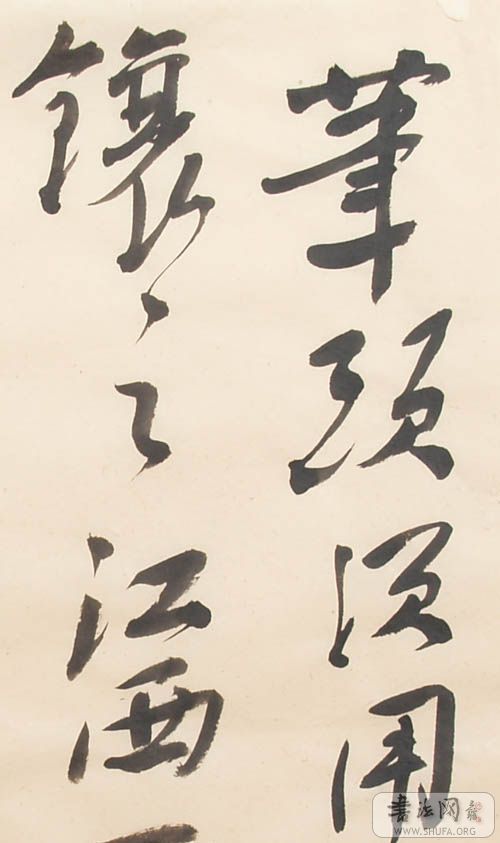 筆頭須用
鑲之江西
書法网
WWW.SHUFA.ORG